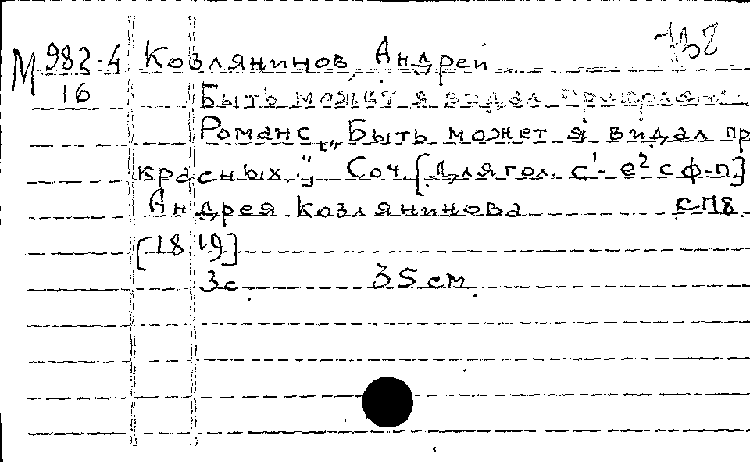 М 983-4 Козлянинов, Андрей
16 Быть может я видал прекрасных
Романс „Быть может я видал пр
красных". Соч. [для гол. c¹-e² с ф-п]
Андрея Козлянинова СПб
[18 19]
3с. 35 см.